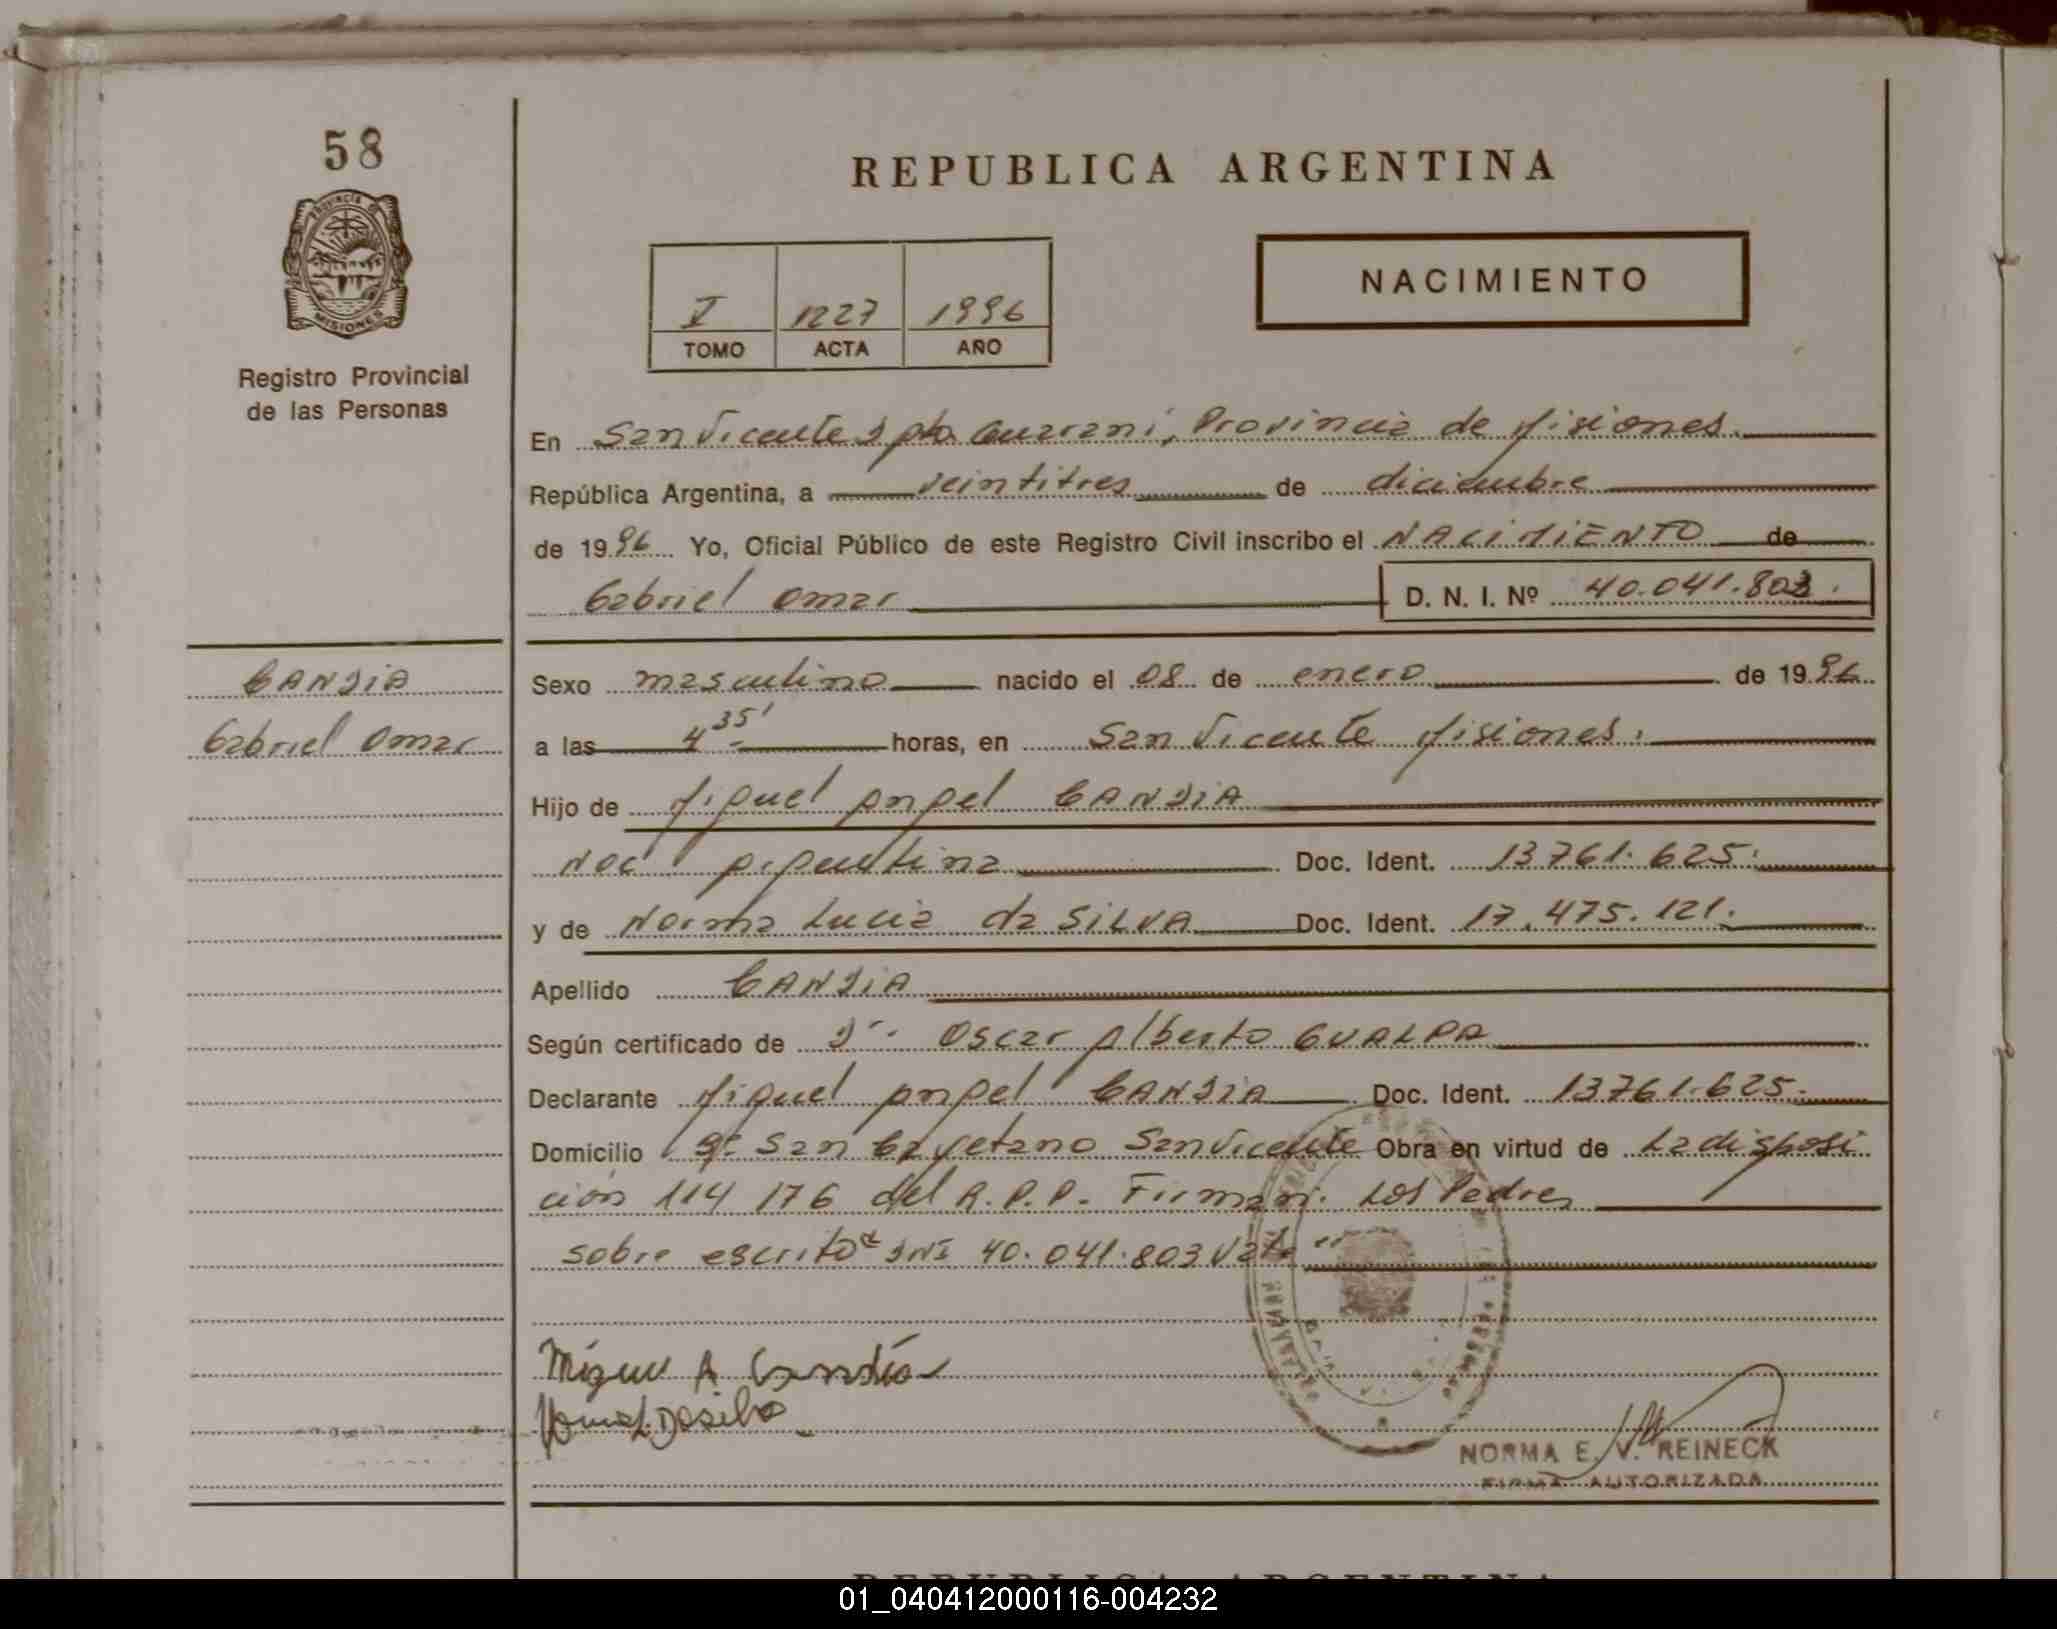 58
PROVINCIA DE
MISIONES
Registro Provincial
de las Personas
REPUBLICA ARGENTINA
NACIMIENTO
V 1227 1996
TOMO ACTA AÑO
En San Vicente Dpto. Guarani, Provincia de Misiones.
República Argentina, a veintitres de diciembre
de 1996 Yo, Oficial Público de este Registro Civil inscribo el NACIMIENTO de
Gabriel Omar D. N. I. Nº 40.041.803.
CANDIA
Gabriel Omar
Sexo masculino nacido el 08 de enero de 1996
a las 4 35' horas, en San Vicente Misiones.
Hijo de Miguel Angel CANDIA
Nac Argentina Doc. Ident. 13761.625.
y de Norma Lucia da SILVA Doc. Ident. 17.475.121.
Apellido CANDIA
Según certificado de Dr. Oscar Alberto GUALPA
Declarante Miguel Angel CANDIA Doc. Ident. 13761.625.
Domicilio Bº San Cayetano San Vicente Obra en virtud de La disposi
ción 114 176 del R.P.P. Firman. Los Padres
sobre escrito DNI 40.041.803 Vale
Miguel A Candia
Norma L. Dasilva
NORMA E. V. REINECK
FIRMA AUTORIZADA
REPUBLICA ARGENTINA
01_040412000116-004232